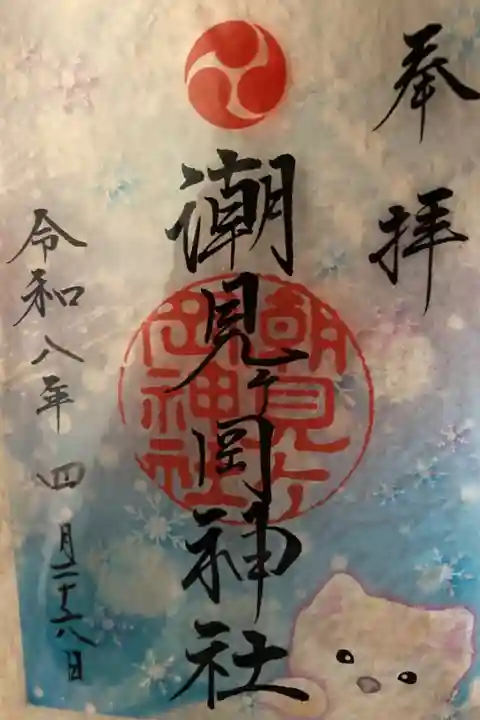 奉拝
潮見ヶ岡神社
潮見ヶ
岡神社
令和八年四月二十八日